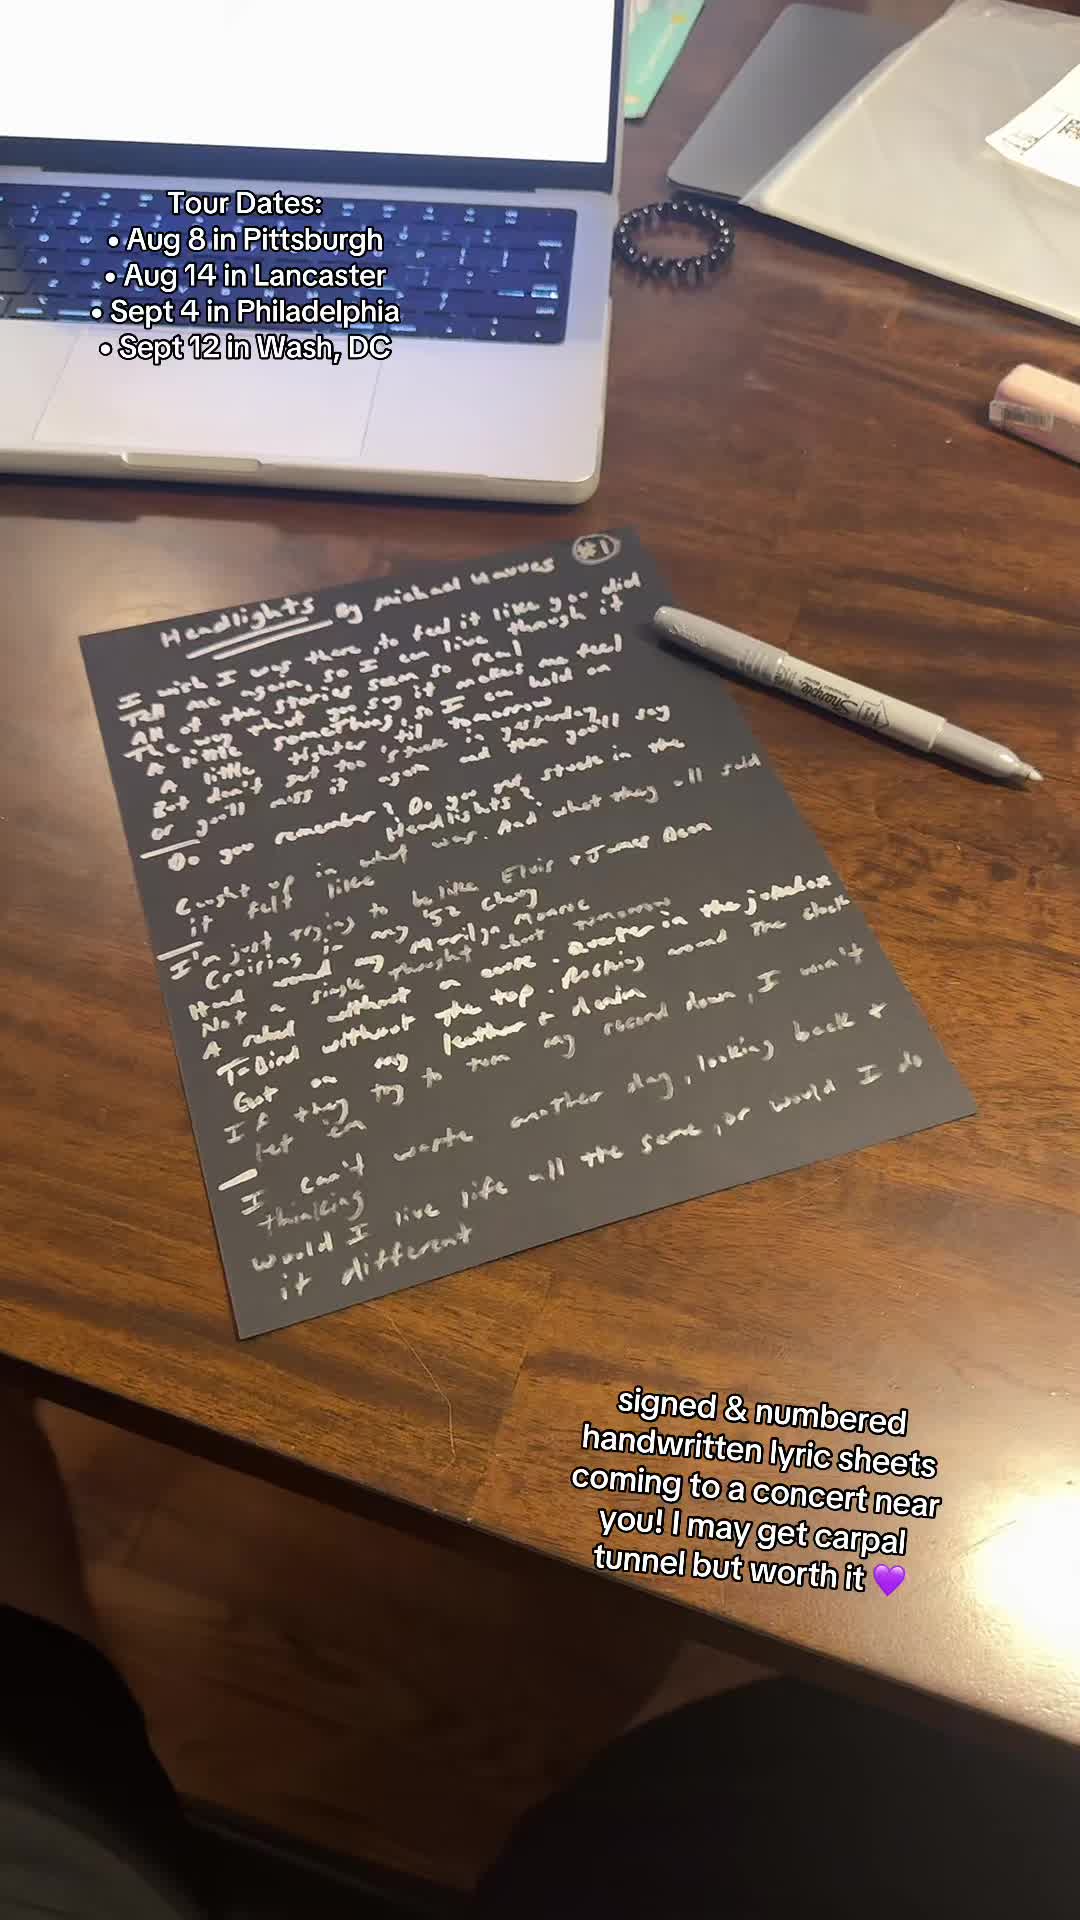 Tour Dates:
• Aug 8 in Pittsburgh
• Aug 14 in Lancaster
• Sept 4 in Philadelphia
• Sept 12 in Wash, DC
#1
Headlights By Michael
I wish I was there, to feel it like you did
Tell me again, so I can live though it
All of the stories seem so real
The way that you say it makes me feel
A little something, so I can hold on
A little tighter 'til tomorrow
But don't get too stuck in yesterday
or you'll miss it again and then you'll say
Do you remember? Do you get stuck in the
Headlights?
Caught up in what was. And what they all said
it felt like
I'm just trying to be like Elvis + James Dean
Cruising in my '52 Chevy
Hand around my Marilyn Monroe
Not a single thought about tomorrow
A rebel without a cause. Quarter in the jukebox
T-Bird without the top. Rocking around the clock
Got on my leather + denim
If they try to turn my record down, I won't
let 'em
I can't waste another day, looking back +
thinking
would I live life all the same, or would I do
it different
Sharpie
signed & numbered
handwritten lyric sheets
coming to a concert near
you! I may get carpal
tunnel but worth it 💜